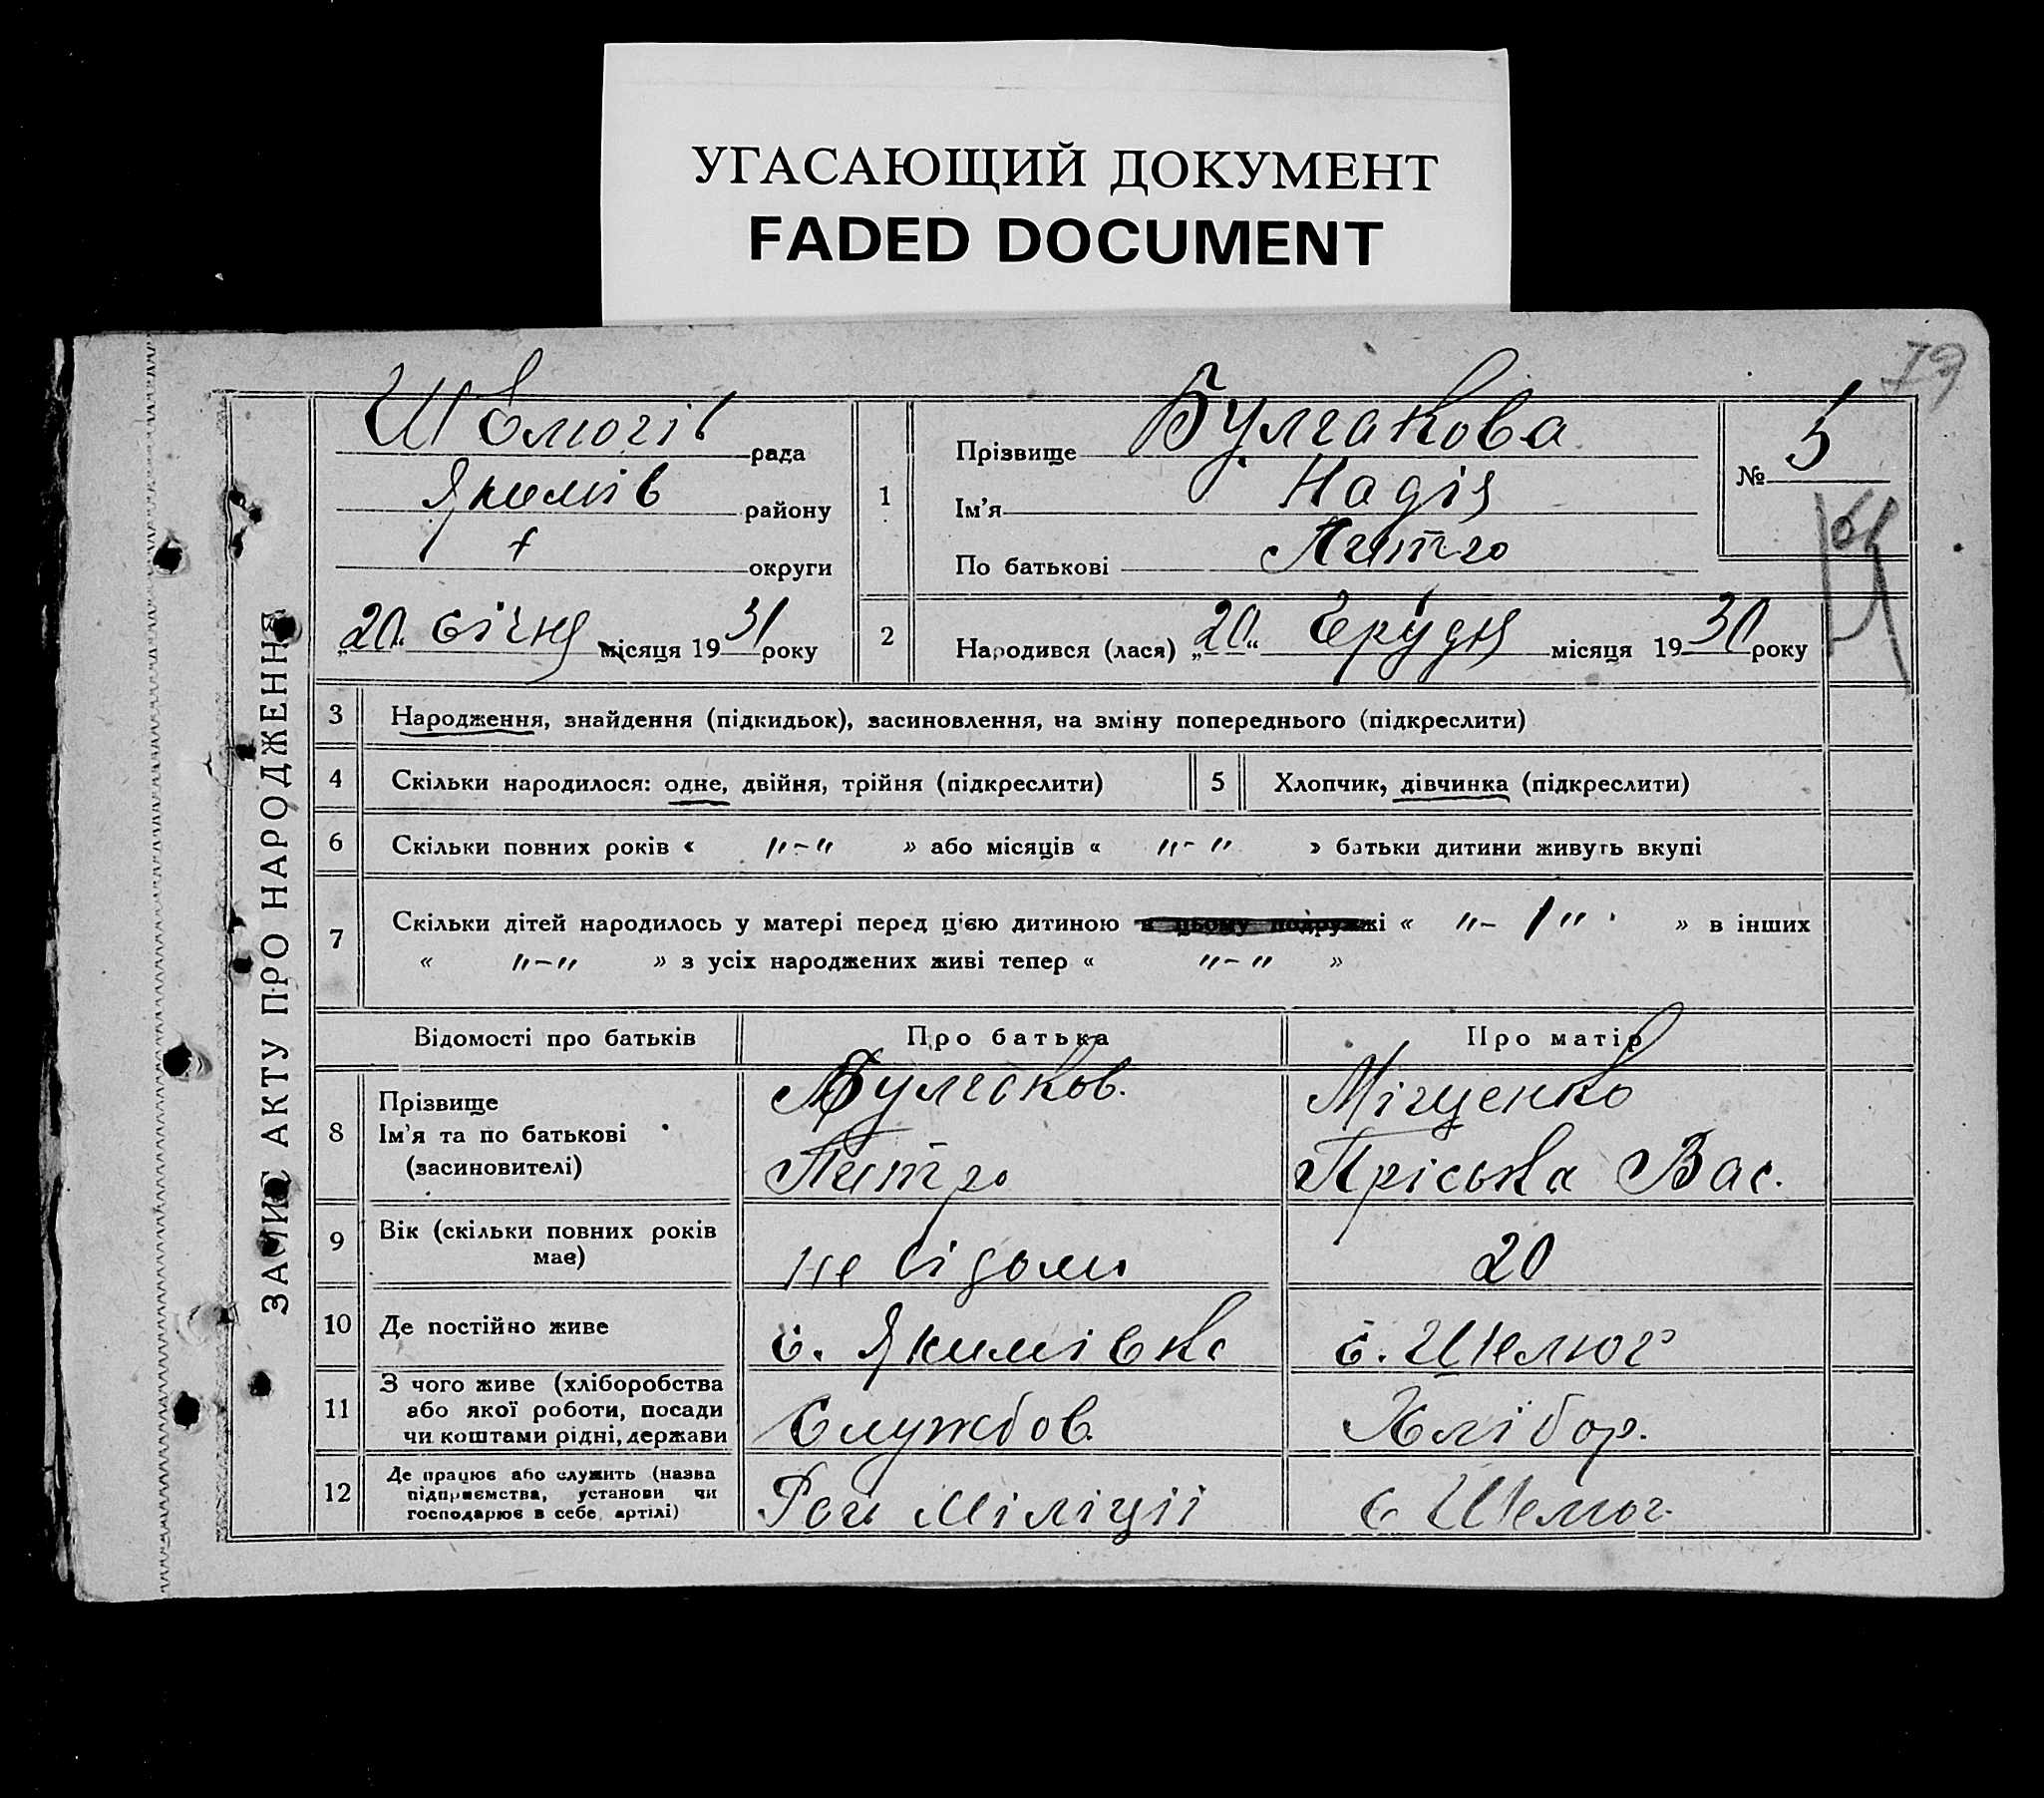 УГАСАЮЩИЙ ДОКУМЕНТ
FADED DOCUMENT
79
ЗАПИС АКТУ ПРО НАРОДЖЕННЯ
рада
Якимів району
округи
„20“ січня місяця 1931 року
1
Прізвище Булгакова
Ім'я Надія
По батькові Петро
№ 5
2 Народився (лася) „20“ Грудня місяця 1930 року
3 Народження, знайдення (підкидьок), засиновлення, на зміну попереднього (підкреслити)
4 Скільки народилося: одне, двійня, трійня (підкреслити) 5 Хлопчик, дівчинка (підкреслити)
6 Скільки повних років « "-" » або місяців « "-" » батьки дитини живуть вкупі
7 Скільки дітей народилось у матері перед цією дитиною в цьому подружжі « "-1" » в інших
« "-" » з усіх народжених живі тепер « "-" »
Відомості про батьків Про батька Про матір
8 Прізвище Булгаков. Міщенко
Ім'я та по батькові
(засиновителі) Петро Пріська Вас.
9 Вік (скільки повних років
має) не відомо 20
10 Де постійно живе с. Якимівка с. Шелюг
11 З чого живе (хліборобства
або якої роботи, посади
чи коштами рідні, держави Службов. Хлібор.
12 Де працює або служить (назва
підприємства, установи чи
господарює в себе, артілі) Рай Міліції с Шелюг.